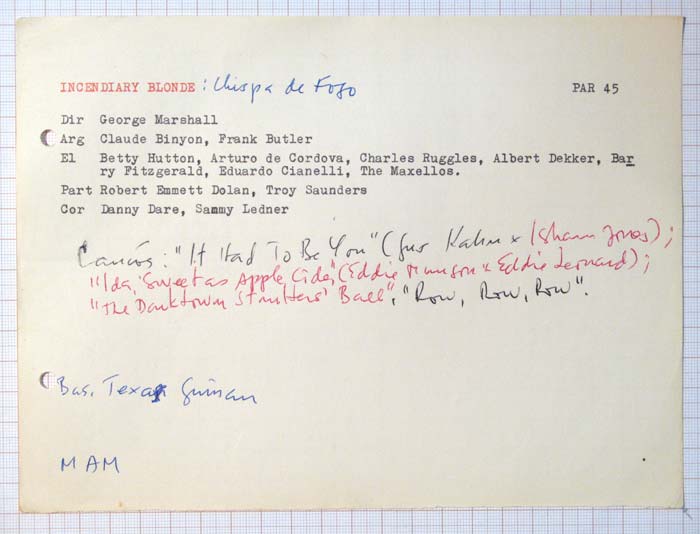 INCENDIARY BLONDE : Chispa de Fogo PAR 45
Dir George Marshall
Arg Claude Binyon, Frank Butler
El Betty Hutton, Arturo de Cordova, Charles Ruggles, Albert Dekker, Bar
ry Fitzgerald, Eduardo Cianelli, The Maxellos.
Part Robert Emmett Dolan, Troy Saunders
Cor Danny Dare, Sammy Ledner
: "It Had To Be You" (Gus Kahn x Isham Jones);
"Ida, Sweet as Apple Cider" (Eddie Munson x Eddie Leonard);
"The Darktown Strutters' Ball", "Row, Row, Row".
Bas. Texas Guinan
MAM